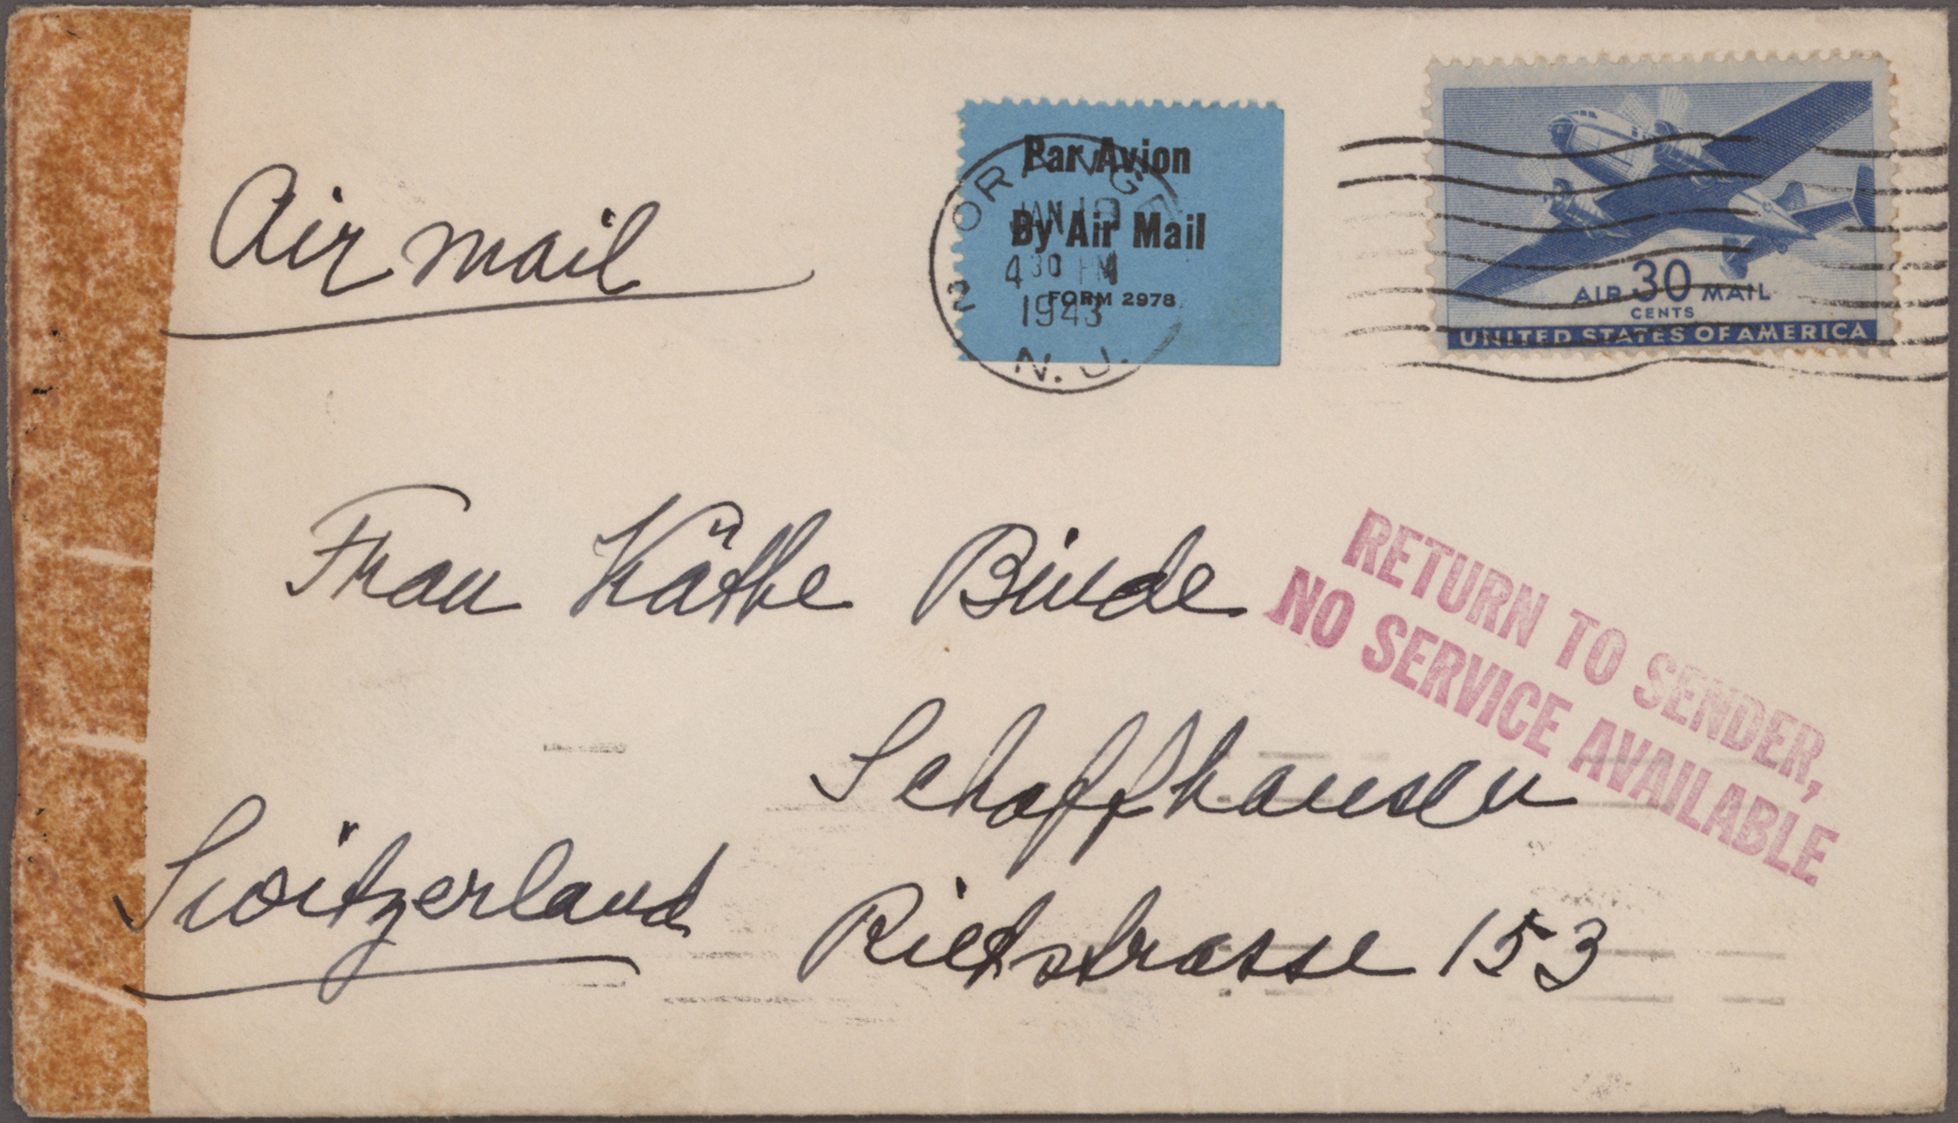 Air mail
Par Avion
By Air Mail
FORM 2978
ORANGE
JAN 19
4 30 PM
1943
N. J.
AIR 30 MAIL
CENTS
UNITED STATES OF AMERICA
Frau Käthe Binde
RETURN TO SENDER,
NO SERVICE AVAILABLE
Schaffhausen
Switzerland
Rietstrasse 153